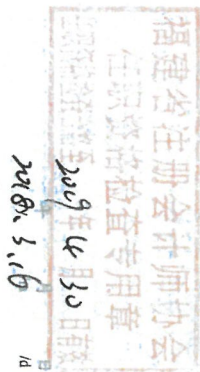 福建省注册会计师协会
任职资格检查专用章
年 月 日
2019 4 30
2018. 3. 16
/d